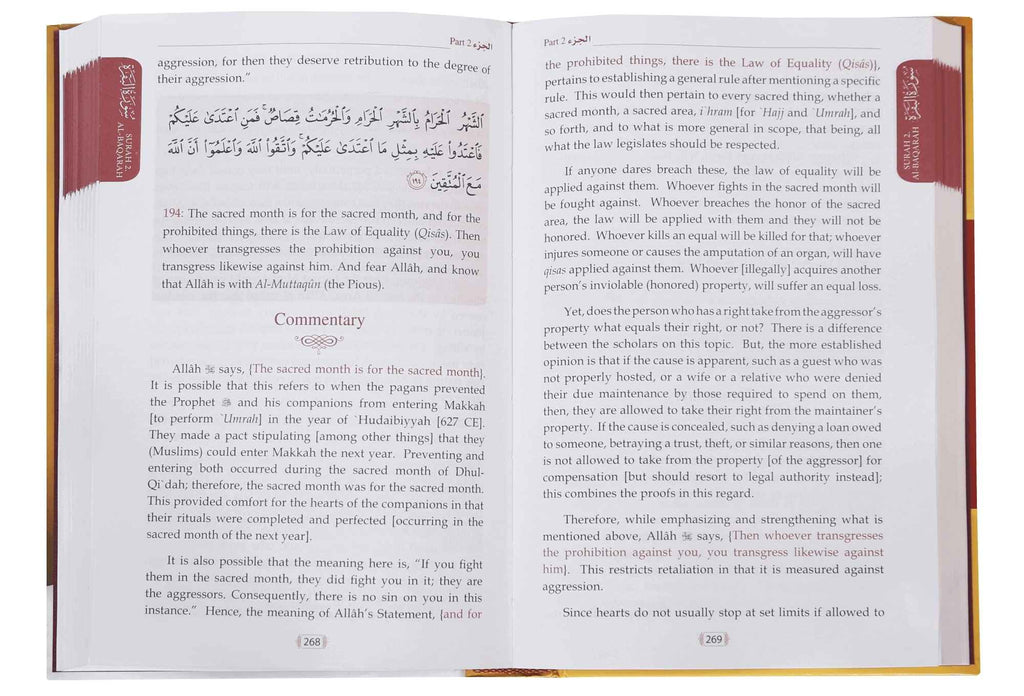 Part 2 الجزء
سورة البقرة
SURAH 2.
AL-BAQARAH
aggression, for then they deserve retribution to the degree of
their aggression.”
الشَّهْرُ الْحَرَامُ بِالشَّهْرِ الْحَرَامِ وَالْحُرُمَاتُ قِصَاصٌ ۚ فَمَنِ اعْتَدَىٰ عَلَيْكُمْ
فَاعْتَدُوا عَلَيْهِ بِمِثْلِ مَا اعْتَدَىٰ عَلَيْكُمْ ۚ وَاتَّقُوا اللَّهَ وَاعْلَمُوا أَنَّ اللَّهَ
مَعَ الْمُتَّقِينَ ١٩٤
194: The sacred month is for the sacred month, and for the
prohibited things, there is the Law of Equality (Qisâs). Then
whoever transgresses the prohibition against you, you
transgress likewise against him. And fear Allâh, and know
that Allâh is with Al-Muttaqûn (the Pious).
Commentary
Allâh ﷻ says, {The sacred month is for the sacred month}.
It is possible that this refers to when the pagans prevented
the Prophet ﷺ and his companions from entering Makkah
[to perform `Umrah] in the year of `Hudaibiyyah [627 CE].
They made a pact stipulating [among other things] that they
(Muslims) could enter Makkah the next year. Preventing and
entering both occurred during the sacred month of Dhul-
Qi`dah; therefore, the sacred month was for the sacred month.
This provided comfort for the hearts of the companions in that
their rituals were completed and perfected [occurring in the
sacred month of the next year].
It is also possible that the meaning here is, “If you fight
them in the sacred month, they did fight you in it; they are
the aggressors. Consequently, there is no sin on you in this
instance.” Hence, the meaning of Allâh’s Statement, {and for
268
Part 2 الجزء
سورة البقرة
SURAH 2.
AL-BAQARAH
the prohibited things, there is the Law of Equality (Qisâs)},
pertains to establishing a general rule after mentioning a specific
rule. This would then pertain to every sacred thing, whether a
sacred month, a sacred area, i`hram [for `Hajj and `Umrah], and
so forth, and to what is more general in scope, that being, all
what the law legislates should be respected.
If anyone dares breach these, the law of equality will be
applied against them. Whoever fights in the sacred month will
be fought against. Whoever breaches the honor of the sacred
area, the law will be applied with them and they will not be
honored. Whoever kills an equal will be killed for that; whoever
injures someone or causes the amputation of an organ, will have
qisas applied against them. Whoever [illegally] acquires another
person’s inviolable (honored) property, will suffer an equal loss.
Yet, does the person who has a right take from the aggressor’s
property what equals their right, or not? There is a difference
between the scholars on this topic. But, the more established
opinion is that if the cause is apparent, such as a guest who was
not properly hosted, or a wife or a relative who were denied
their due maintenance by those required to spend on them,
then, they are allowed to take their right from the maintainer’s
property. If the cause is concealed, such as denying a loan owed
to someone, betraying a trust, theft, or similar reasons, then one
is not allowed to take from the property [of the aggressor] for
compensation [but should resort to legal authority instead];
this combines the proofs in this regard.
Therefore, while emphasizing and strengthening what is
mentioned above, Allâh ﷻ says, {Then whoever transgresses
the prohibition against you, you transgress likewise against
him}. This restricts retaliation in that it is measured against
aggression.
Since hearts do not usually stop at set limits if allowed to
269